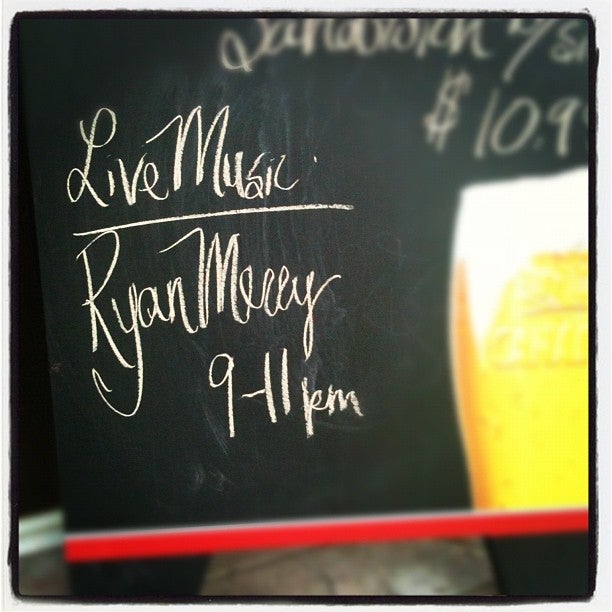 Sandwich w/
$10.9
Live Music
Ryan Merey
9-11pm